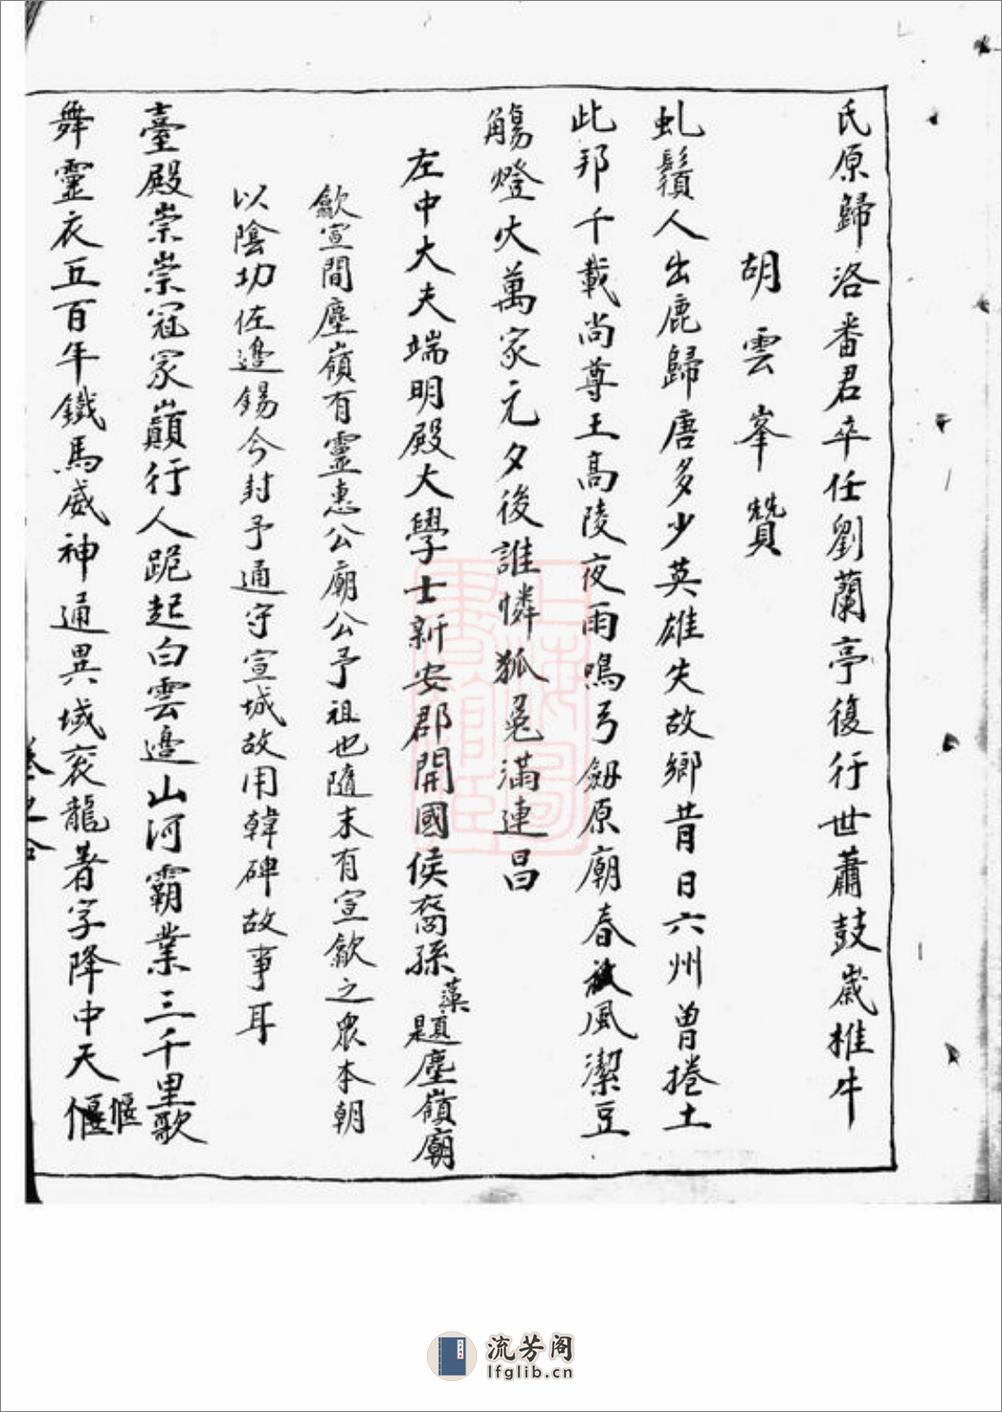 氏原歸洛番君卒任劉蘭亭復行世蕭鼓歲椎牛
胡雲峯贊
虬鬚人出鹿歸唐多少英雄失故鄉昔日六州曾捲土
此邦千載尚尊王高陵夜雨鳴弓劒原廟春風潔豆
觴燈火萬家元夕後誰憐狐兔滿連昌
左中大夫端明殿大學士新安郡開國侯裔孫藻題塵嶺廟
歙宣間塵嶺有靈惠公廟公予祖也隨末有宣歙之眾本朝
以陰功佐邊錫今封予通守宣城故用韓碑故事耳
臺殿崇崇冠冢巔行人跪起白雲邊山河霸業三千里歌
舞靈衣五百年鐵馬威神通異域衮龍著字降中天偃偃
流芳阁
lfglib.cn